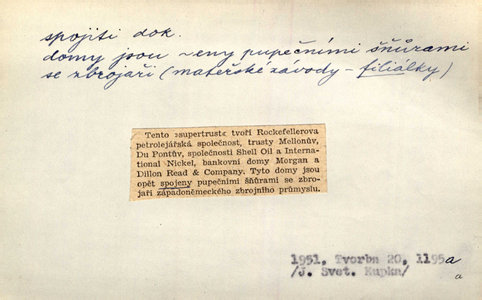 spojiti dok.
domy jsou ~eny pupečními šňůrami
se zbrojaři (mateřské závody – filiálky)
Tento »supertrust« tvoří Rockefellerova
petrolejářská společnost, trusty Mellonův,
Du Pontův, společnosti Shell Oil a Interna-
tional Nickel, bankovní domy Morgan a
Dillon Read & Company. Tyto domy jsou
opět spojeny pupečními šňůrami se zbro-
jaři západoněmeckého zbrojního průmyslu.
1951, Tvorba 20, 1195a
/J. Svet. Kupka/
a